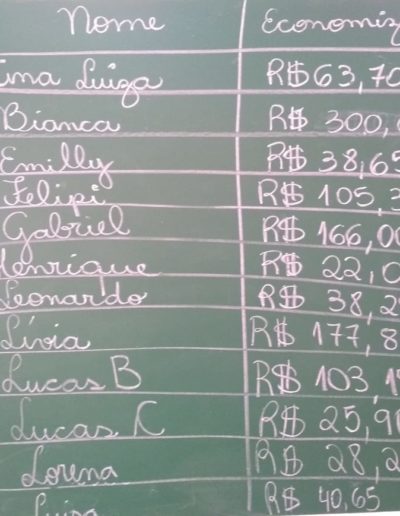 Nome Economiz
Ana Luiza R$63,70
Bianca R$ 300,
Emilly R$ 38,65
Felipi R$ 105,3
Gabriel R$ 166,00
Henrique R$ 22,0
Leonardo R$ 38,2
Lívia R$ 177,8
Lucas B R$ 103,1
Lucas C R$ 25,90
Lorena R$ 28,2
Luiza R$ 40,65